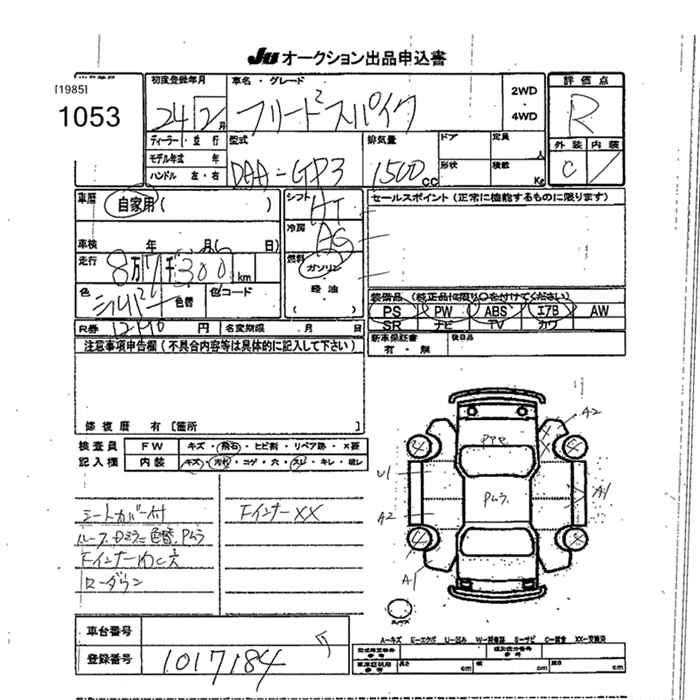 JU オークション出品申込書
[1985]
1053
初度登録年月
24 12月
車名・グレード
フリードスパイク
2WD
・
4WD
評価点
R
外装 内装
C
ディーラー・並行
モデル年式 年
ハンドル 左・右
型式
DAA-GP3
排気量
1500 CC
ドア
形状
定員 人
積載 Kg
車歴
自家用( )
シフト
AT
セールスポイント(正常に機能するものに限ります)
車検 年 月( 日)
冷房
AC
走行
8万7千300km
燃料
ガソリン
軽油
( )
色
シルバー
色替
色コード
装備品(純正品に限り○を付けてください)
PS PW ABS エアB AW
SR ナビ TV カワ
R券 12410 円
名変期限 月 日
新車保証書
有・無
後日品
注意事項申告欄(不具合内容等は具体的に記入して下さい)
修復歴 有 [箇所 ]
検査員
記入欄
FW キズ・飛石・ヒビ割・リペア跡・X要
内装 キズ・汚れ・コゲ・穴・スレ・キレ・破レ
シートカバー付
ルーフ、Dミラー色替、Pムラ
Fインナーわれ欠
ローダウン
Fインナー XX
A2
U1
Pムラ
A1
A2
A1
A-キズ E-エクボ U-凹み W-補修跡 S-サビ C-腐食 XX-交換済
車台番号
登録番号
1017184
長さ cm 幅 cm 高さ cm